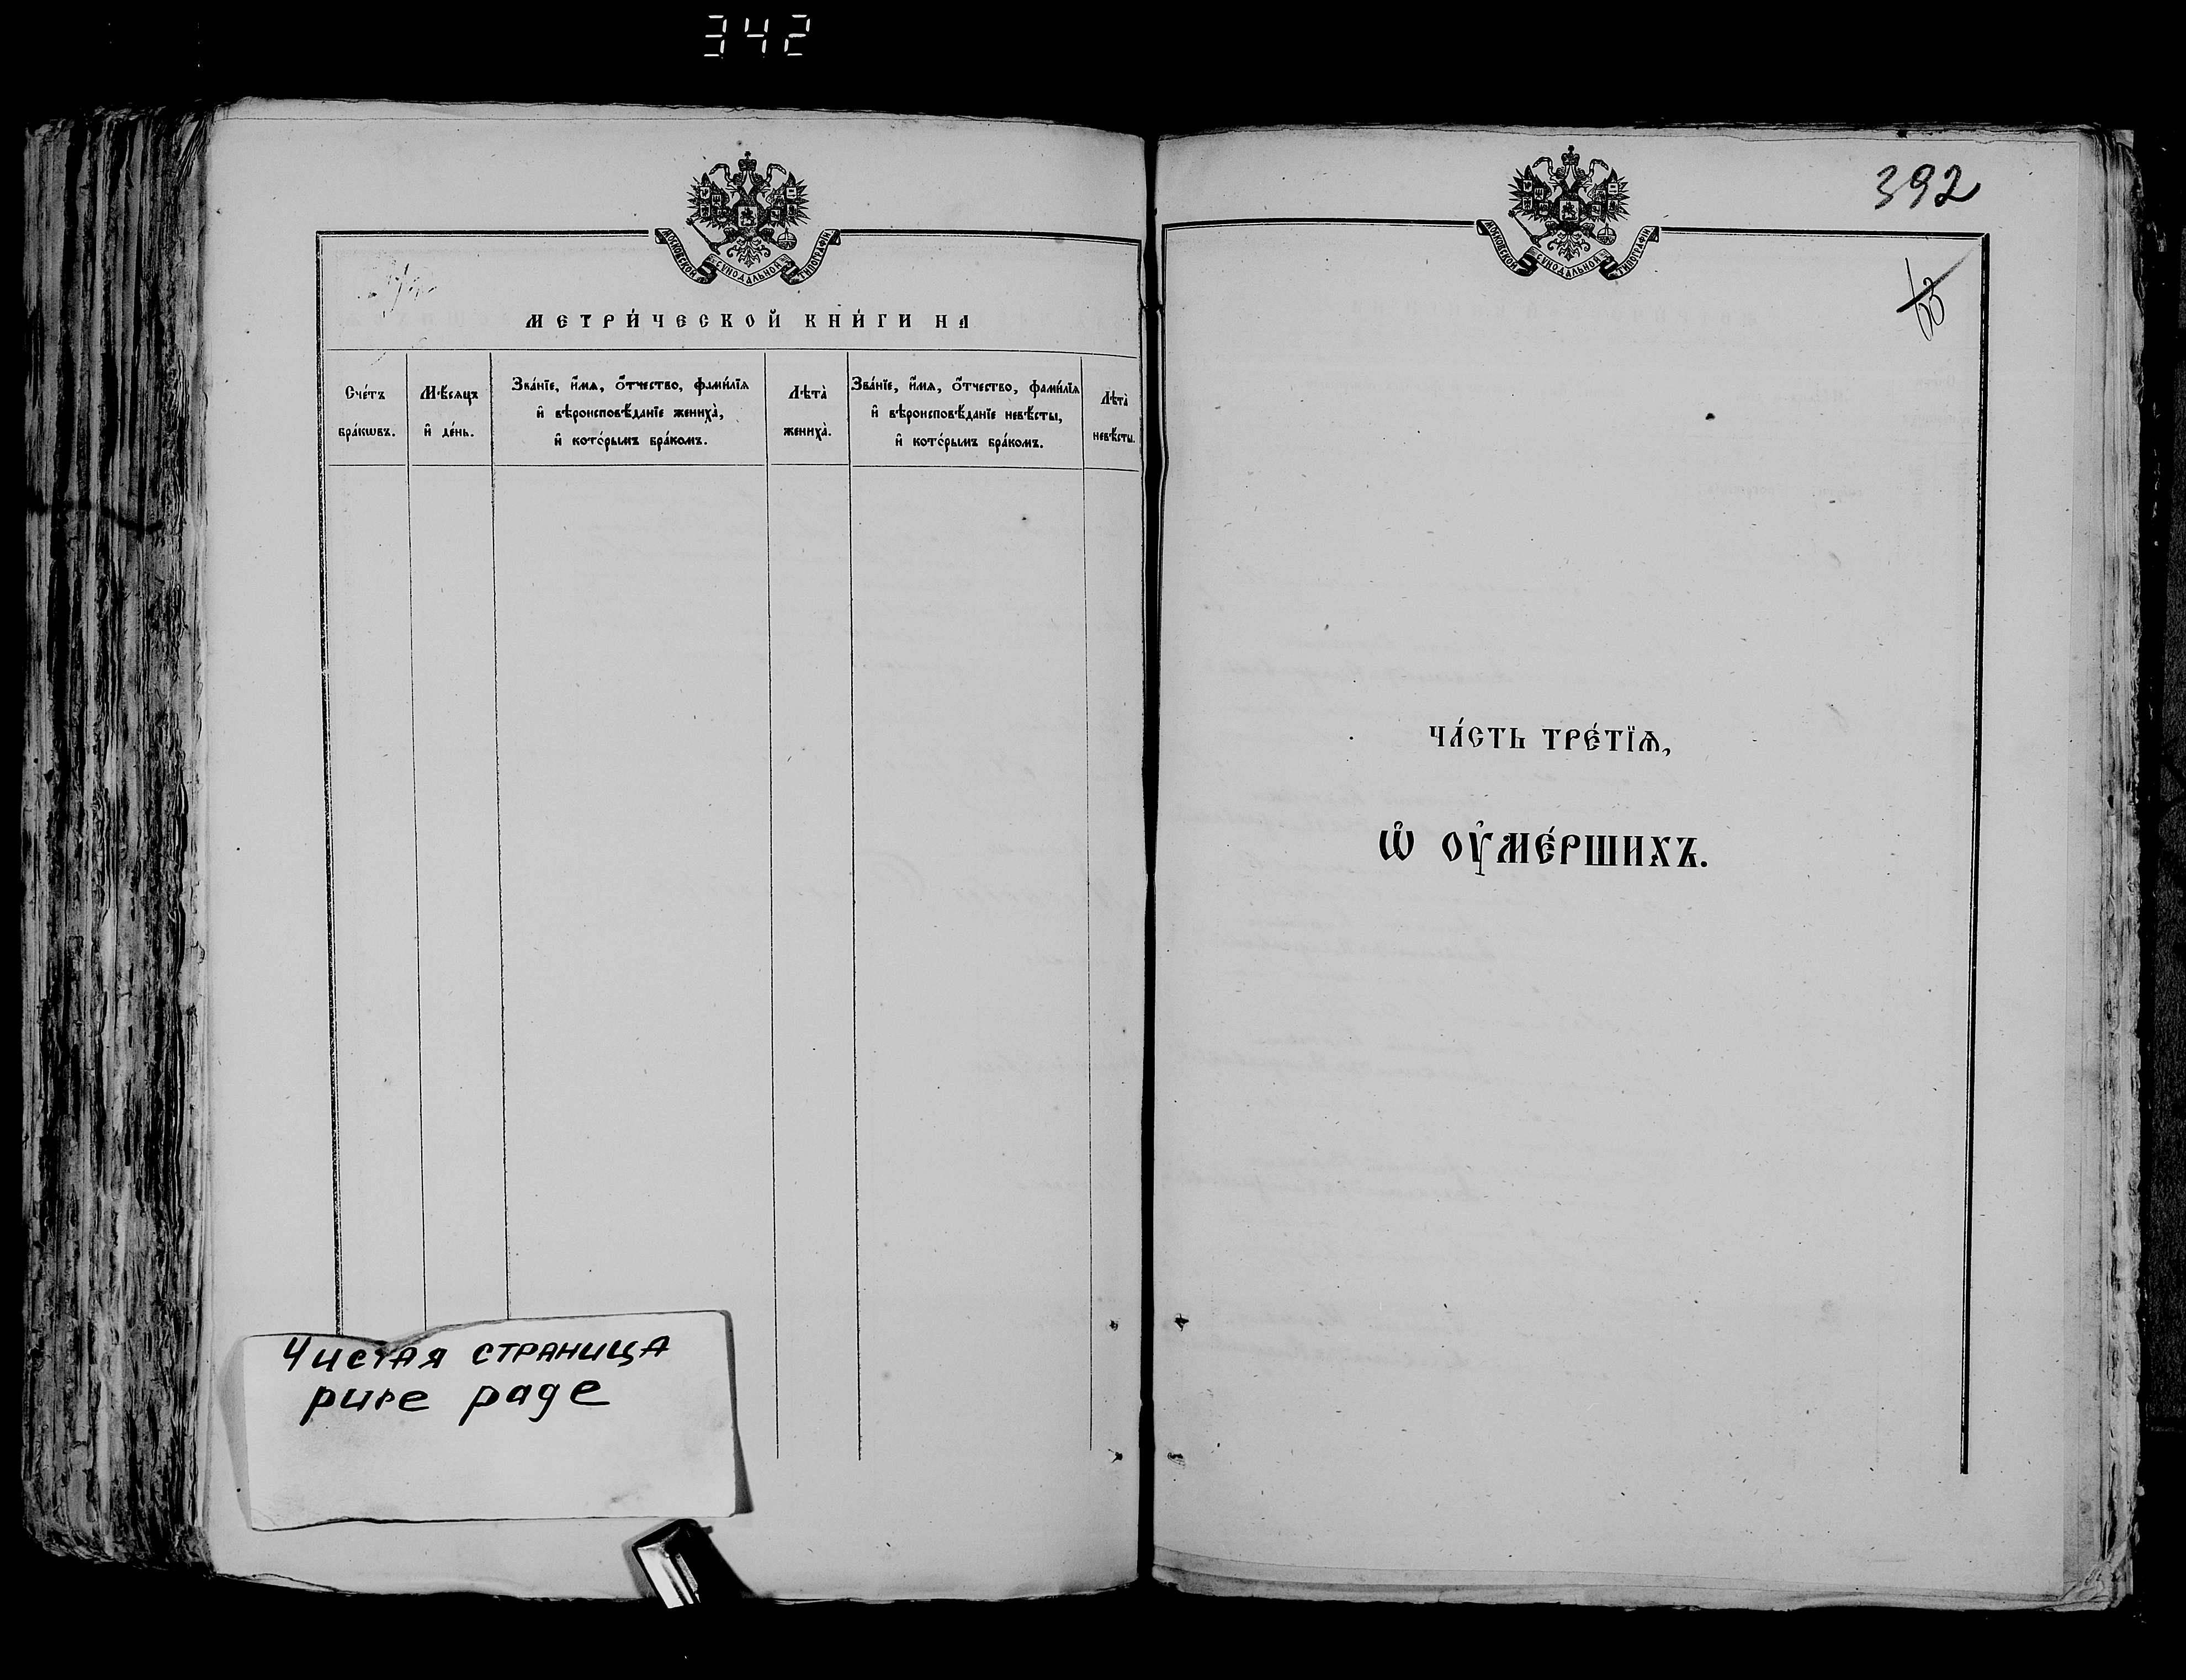 342
МОСКОВСКОЙ СѴНОДАЛЬНОЙ ТИПОГРАФІИ
МЕТРИ́ЧЕСКОЙ КНИ́ГИ НА
Сче́тъ
бра́кѡвъ.
Мѣ́сяцъ
и҆ де́нь.
Зва́нїе, и҆́мѧ, ѻ҆́тчество, фамі́лїѧ
и҆ вѣроисповѣ́данїе жениха̀,
и҆ кото́рымъ бра́комъ.
Лѣта̀
жениха̀.
Зва́нїе, и҆́мѧ, ѻ҆́тчество, фамі́лїѧ
и҆ вѣроисповѣ́данїе невѣ́сты,
и҆ кото́рымъ бра́комъ.
Лѣта̀
невѣ́сты.
Чистая страница
pure page
МОСКОВСКОЙ СѴНОДАЛЬНОЙ ТИПОГРАФІИ
392
ЧА́СТЬ ТРЕ́ТЇѦ,
Ѡ҆ ОУ҆МЕ́РШИХЪ.